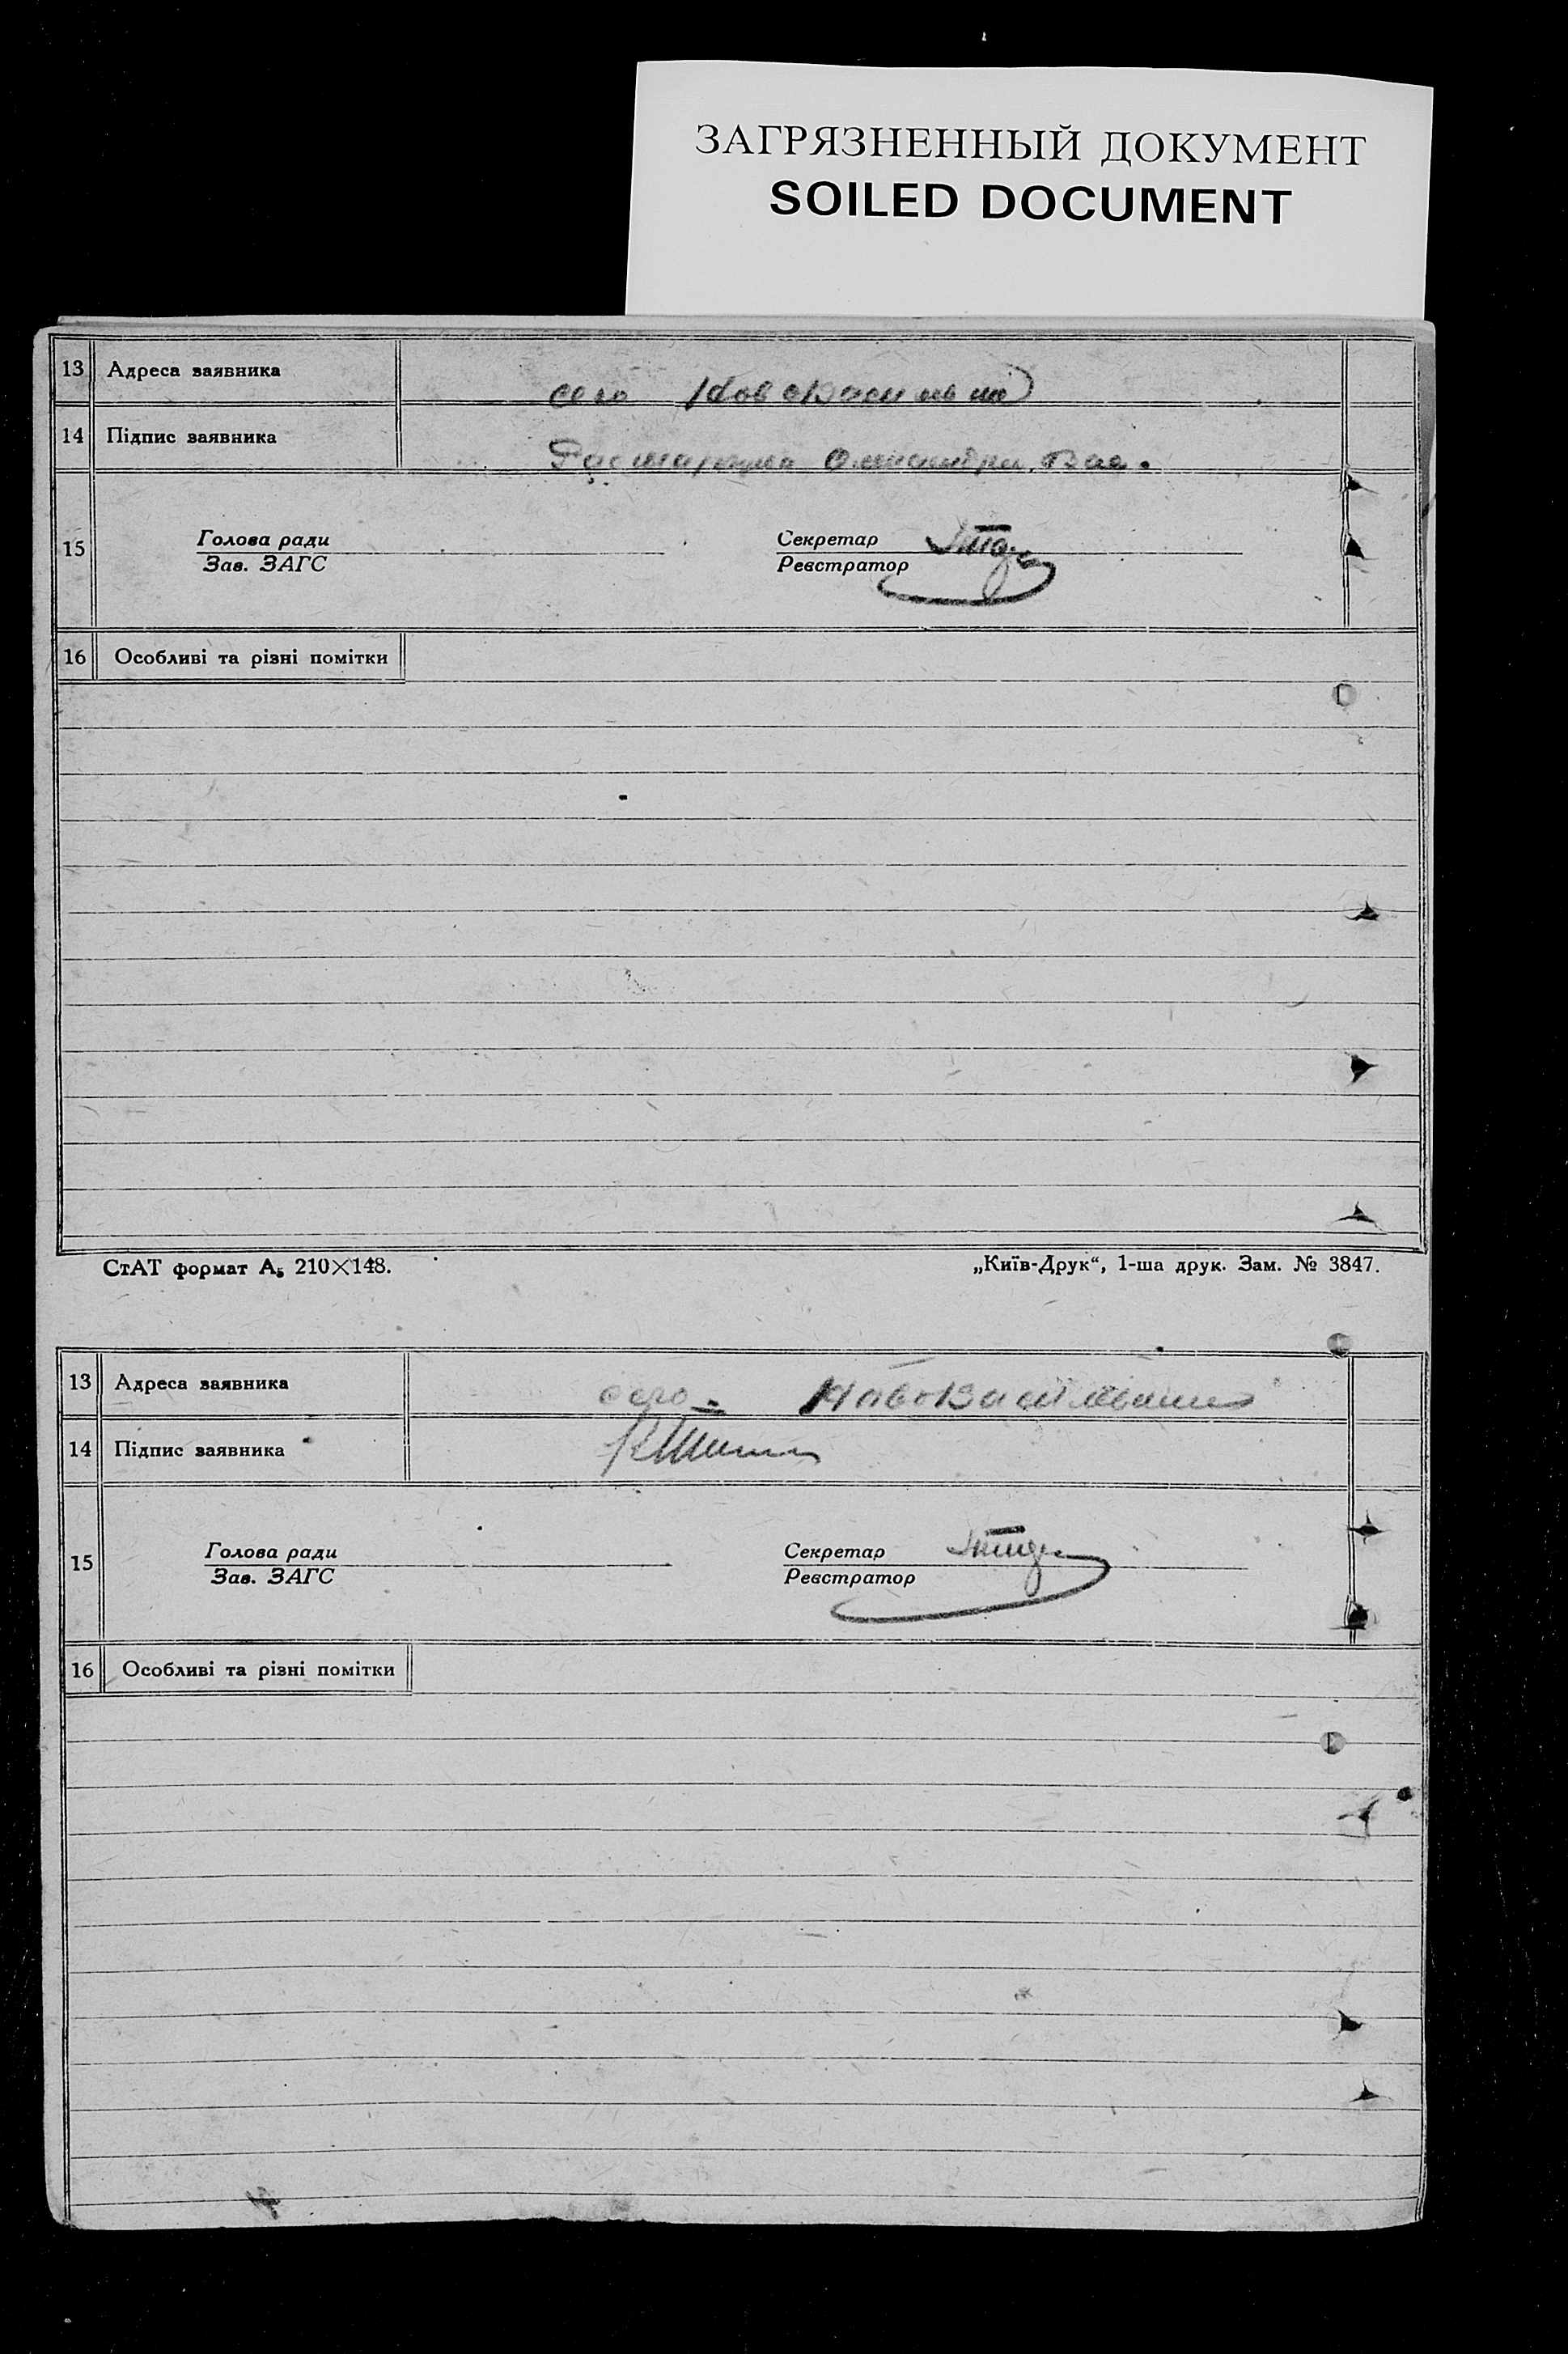 ЗАГРЯЗНЕННЫЙ ДОКУМЕНТ
SOILED DOCUMENT
13 Адреса заявника село
14 Підпис заявника
15 Голова ради Секретар
Зав. ЗАГС Реєстратор
16 Особливі та різні помітки
СтАТ формат А₅ 210×148. „Київ-Друк“, 1-ша друк. Зам. № 3847.
13 Адреса заявника село
14 Підпис заявника
15 Голова ради Секретар
Зав. ЗАГС Реєстратор
16 Особливі та різні помітки